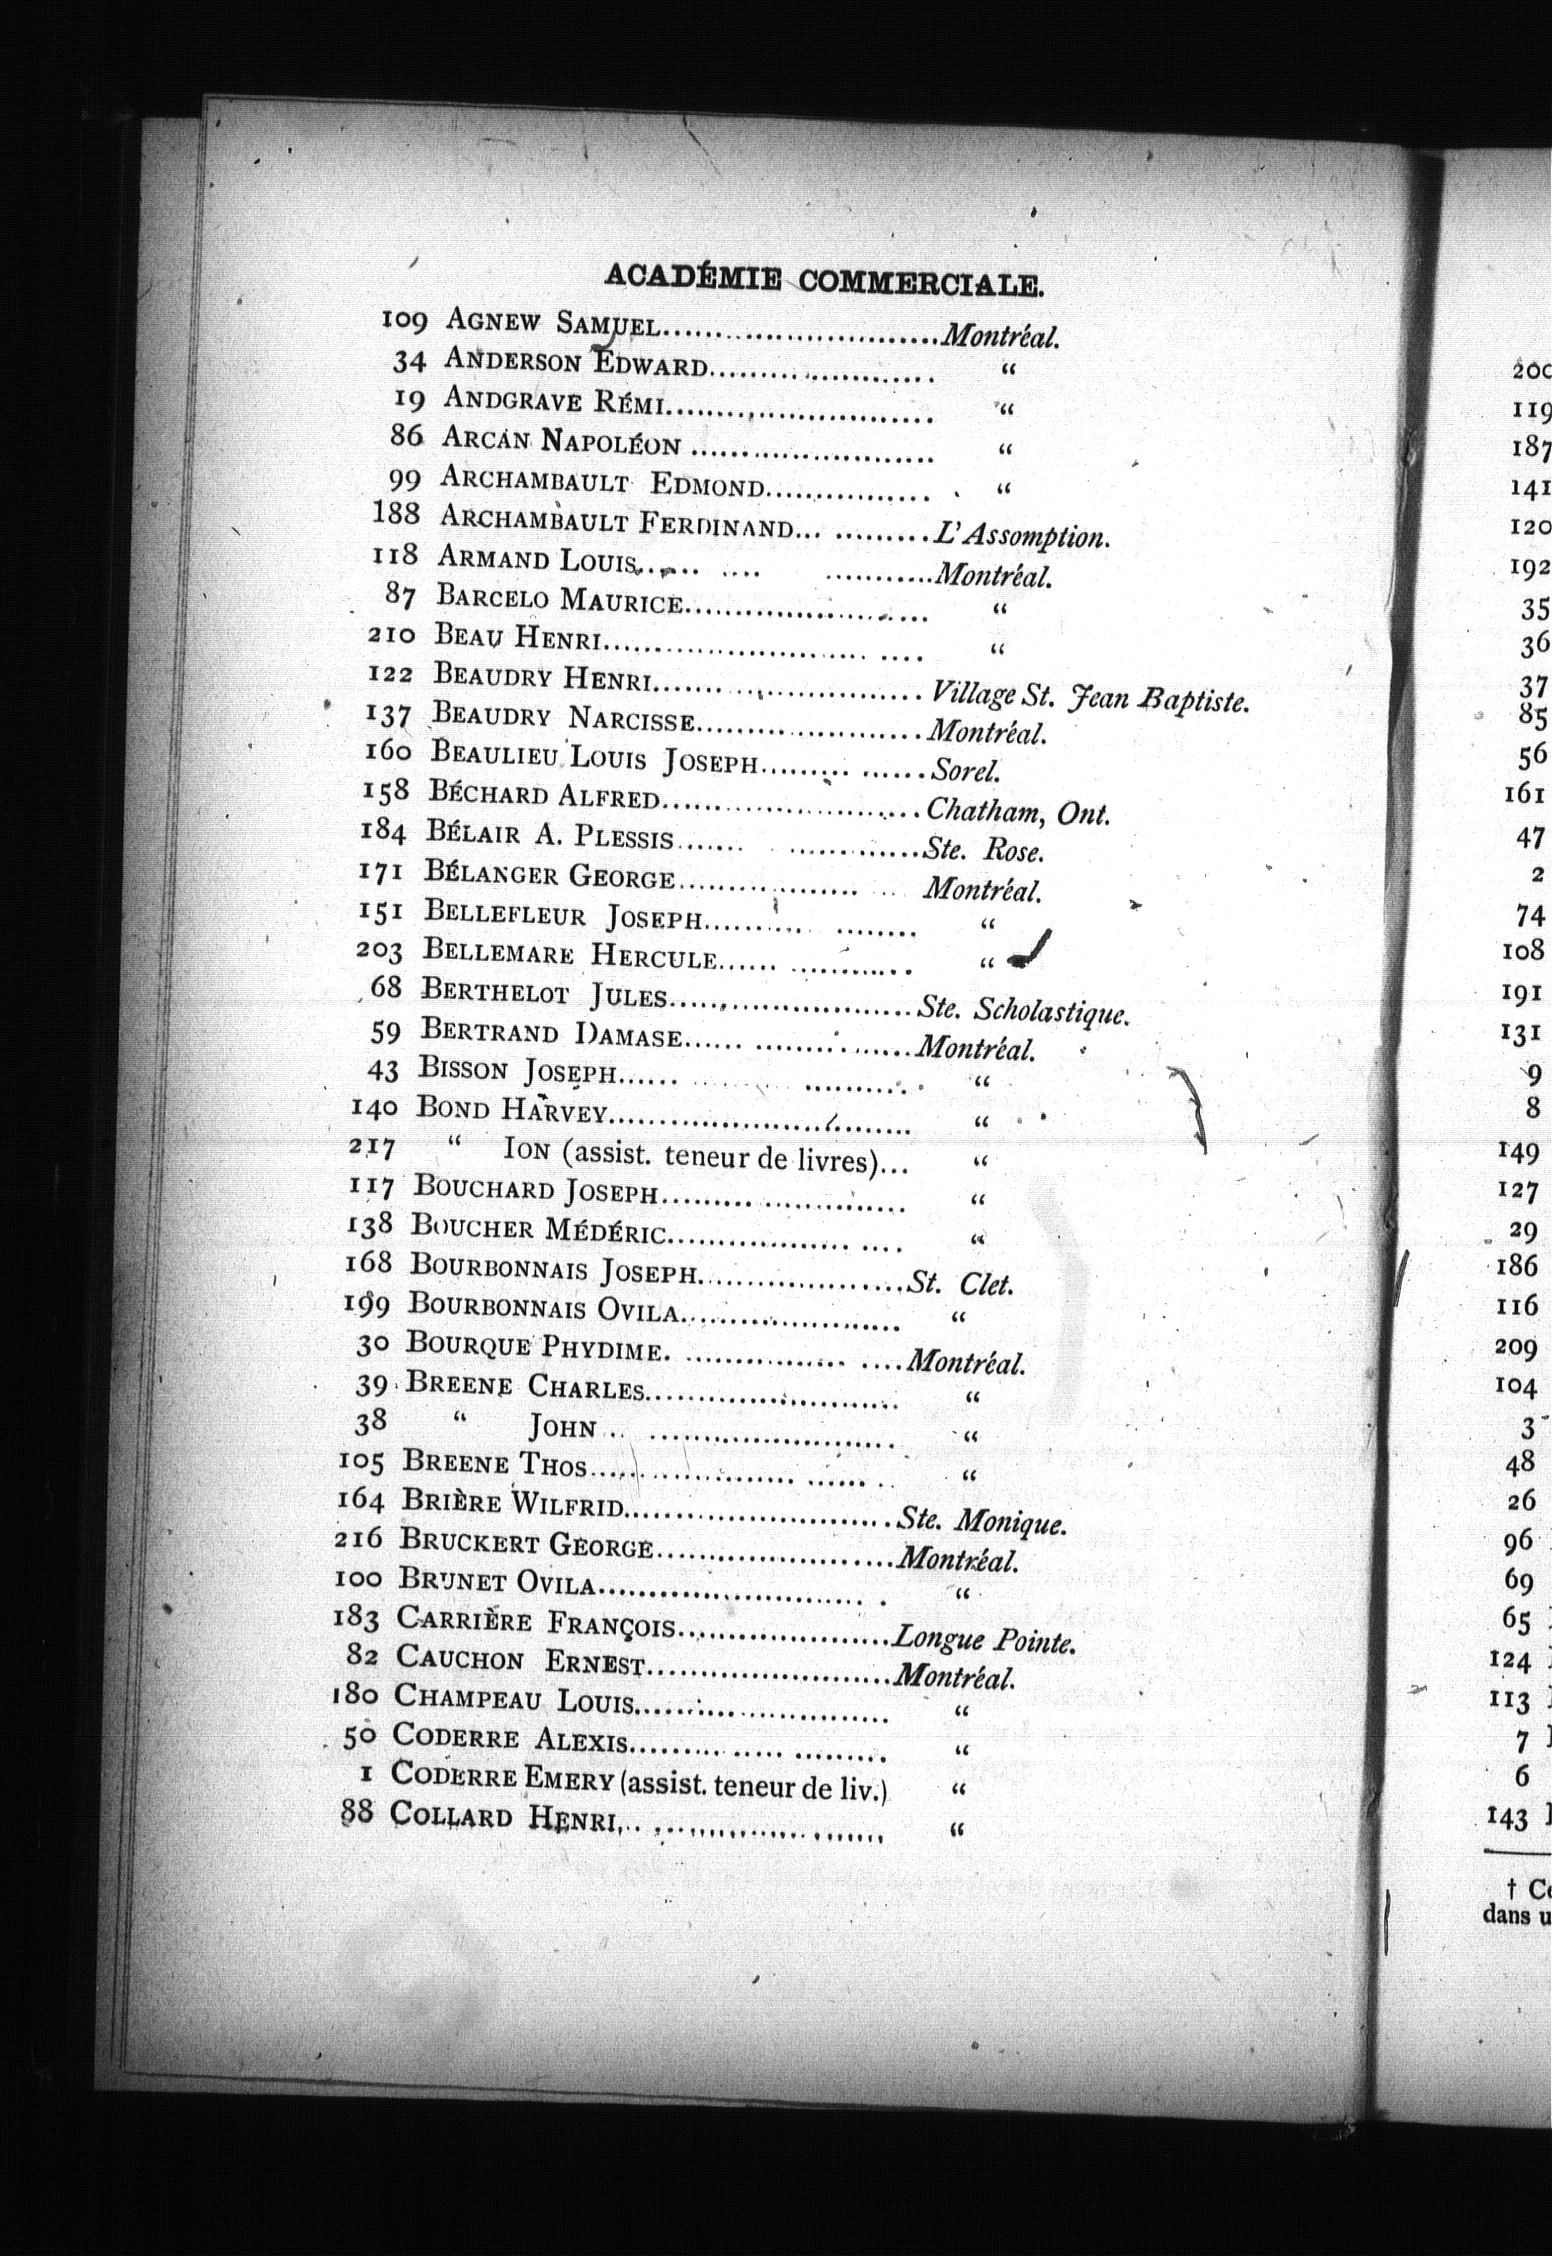 ACADÉMIE COMMERCIALE.
109 AGNEW SAMUEL..............................Montréal.
34 ANDERSON EDWARD........................ “
19 ANDGRAVE RÉMI........................... “
86 ARCAN NAPOLÉON ........................ “
99 ARCHAMBAULT EDMOND................ “
188 ARCHAMBAULT FERDINAND... .........L’Assomption.
118 ARMAND LOUIS...... .... ...........Montréal.
87 BARCELO MAURICE........................ “
210 BEAU HENRI.......................... .... “
122 BEAUDRY HENRI........................... Village St. Jean Baptiste.
137 BEAUDRY NARCISSE.......................Montréal.
160 BEAULIEU LOUIS JOSEPH......... ......Sorel.
158 BÉCHARD ALFRED..........................Chatham, Ont.
184 BÉLAIR A. PLESSIS....... .............Ste. Rose.
171 BÉLANGER GEORGE.................. ... Montréal.
151 BELLEFLEUR JOSEPH.......... ........ “
203 BELLEMARE HERCULE...... ............ “
68 BERTHELOT JULES.........................Ste. Scholastique.
59 BERTRAND DAMASE...... ................Montréal.
43 BISSON JOSEPH...... ........... “
140 BOND HARVEY.............................. “
217 “ ION (assist. teneur de livres)... “
117 BOUCHARD JOSEPH........................ “
138 BOUCHER MÉDÉRIC.................. .... “
168 BOURBONNAIS JOSEPH.....................St. Clet.
199 BOURBONNAIS OVILA...................... “
30 BOURQUE PHYDIME. ................ ....Montréal.
39 BREENE CHARLES.......................... “
38 “ JOHN .. ......................... “
105 BREENE THOS.................... ...... .. “
164 BRIÈRE WILFRID...........................Ste. Monique.
216 BRUCKERT GEORGE........................Montréal.
100 BRUNET OVILA.......................... . “
183 CARRIÈRE FRANÇOIS.....................Longue Pointe.
82 CAUCHON ERNEST........................Montréal.
180 CHAMPEAU LOUIS......................... “
50 CODERRE ALEXIS......... ..... ......... “
1 CODERRE EMERY (assist. teneur de liv.) “
88 COLLARD HENRI... ................ ....... “
200
119
187
141
120
192
35
36
37
85
56
161
47
2
74
108
191
131
9
8
149
127
29
186
116
209
104
3
48
26
96
69
65
124
113
7
6
143
† Ce
dans u